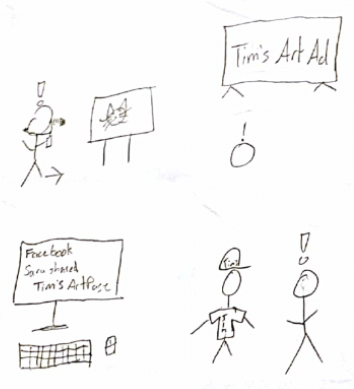 Tim's Art Ad
Facebook
Sara shared
Tim's Art Page
Tim's
Tim